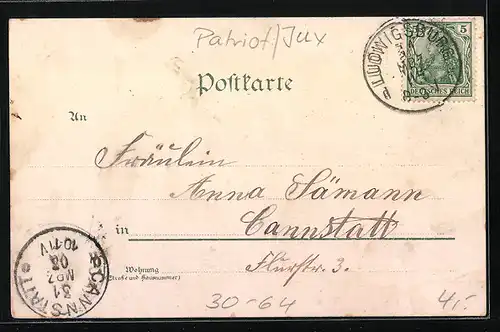 Patriot/Jux
LUDWIGSBURG
5
DEUTSCHES REICH
Postkarte
An
Fräulein
Anna Sämann
in Cannstatt
Wohnung
(Straße und Hausnummer)
Flurstr. 3.
CANNSTATT
31
MRZ
03
10-11V
30-64
4,-